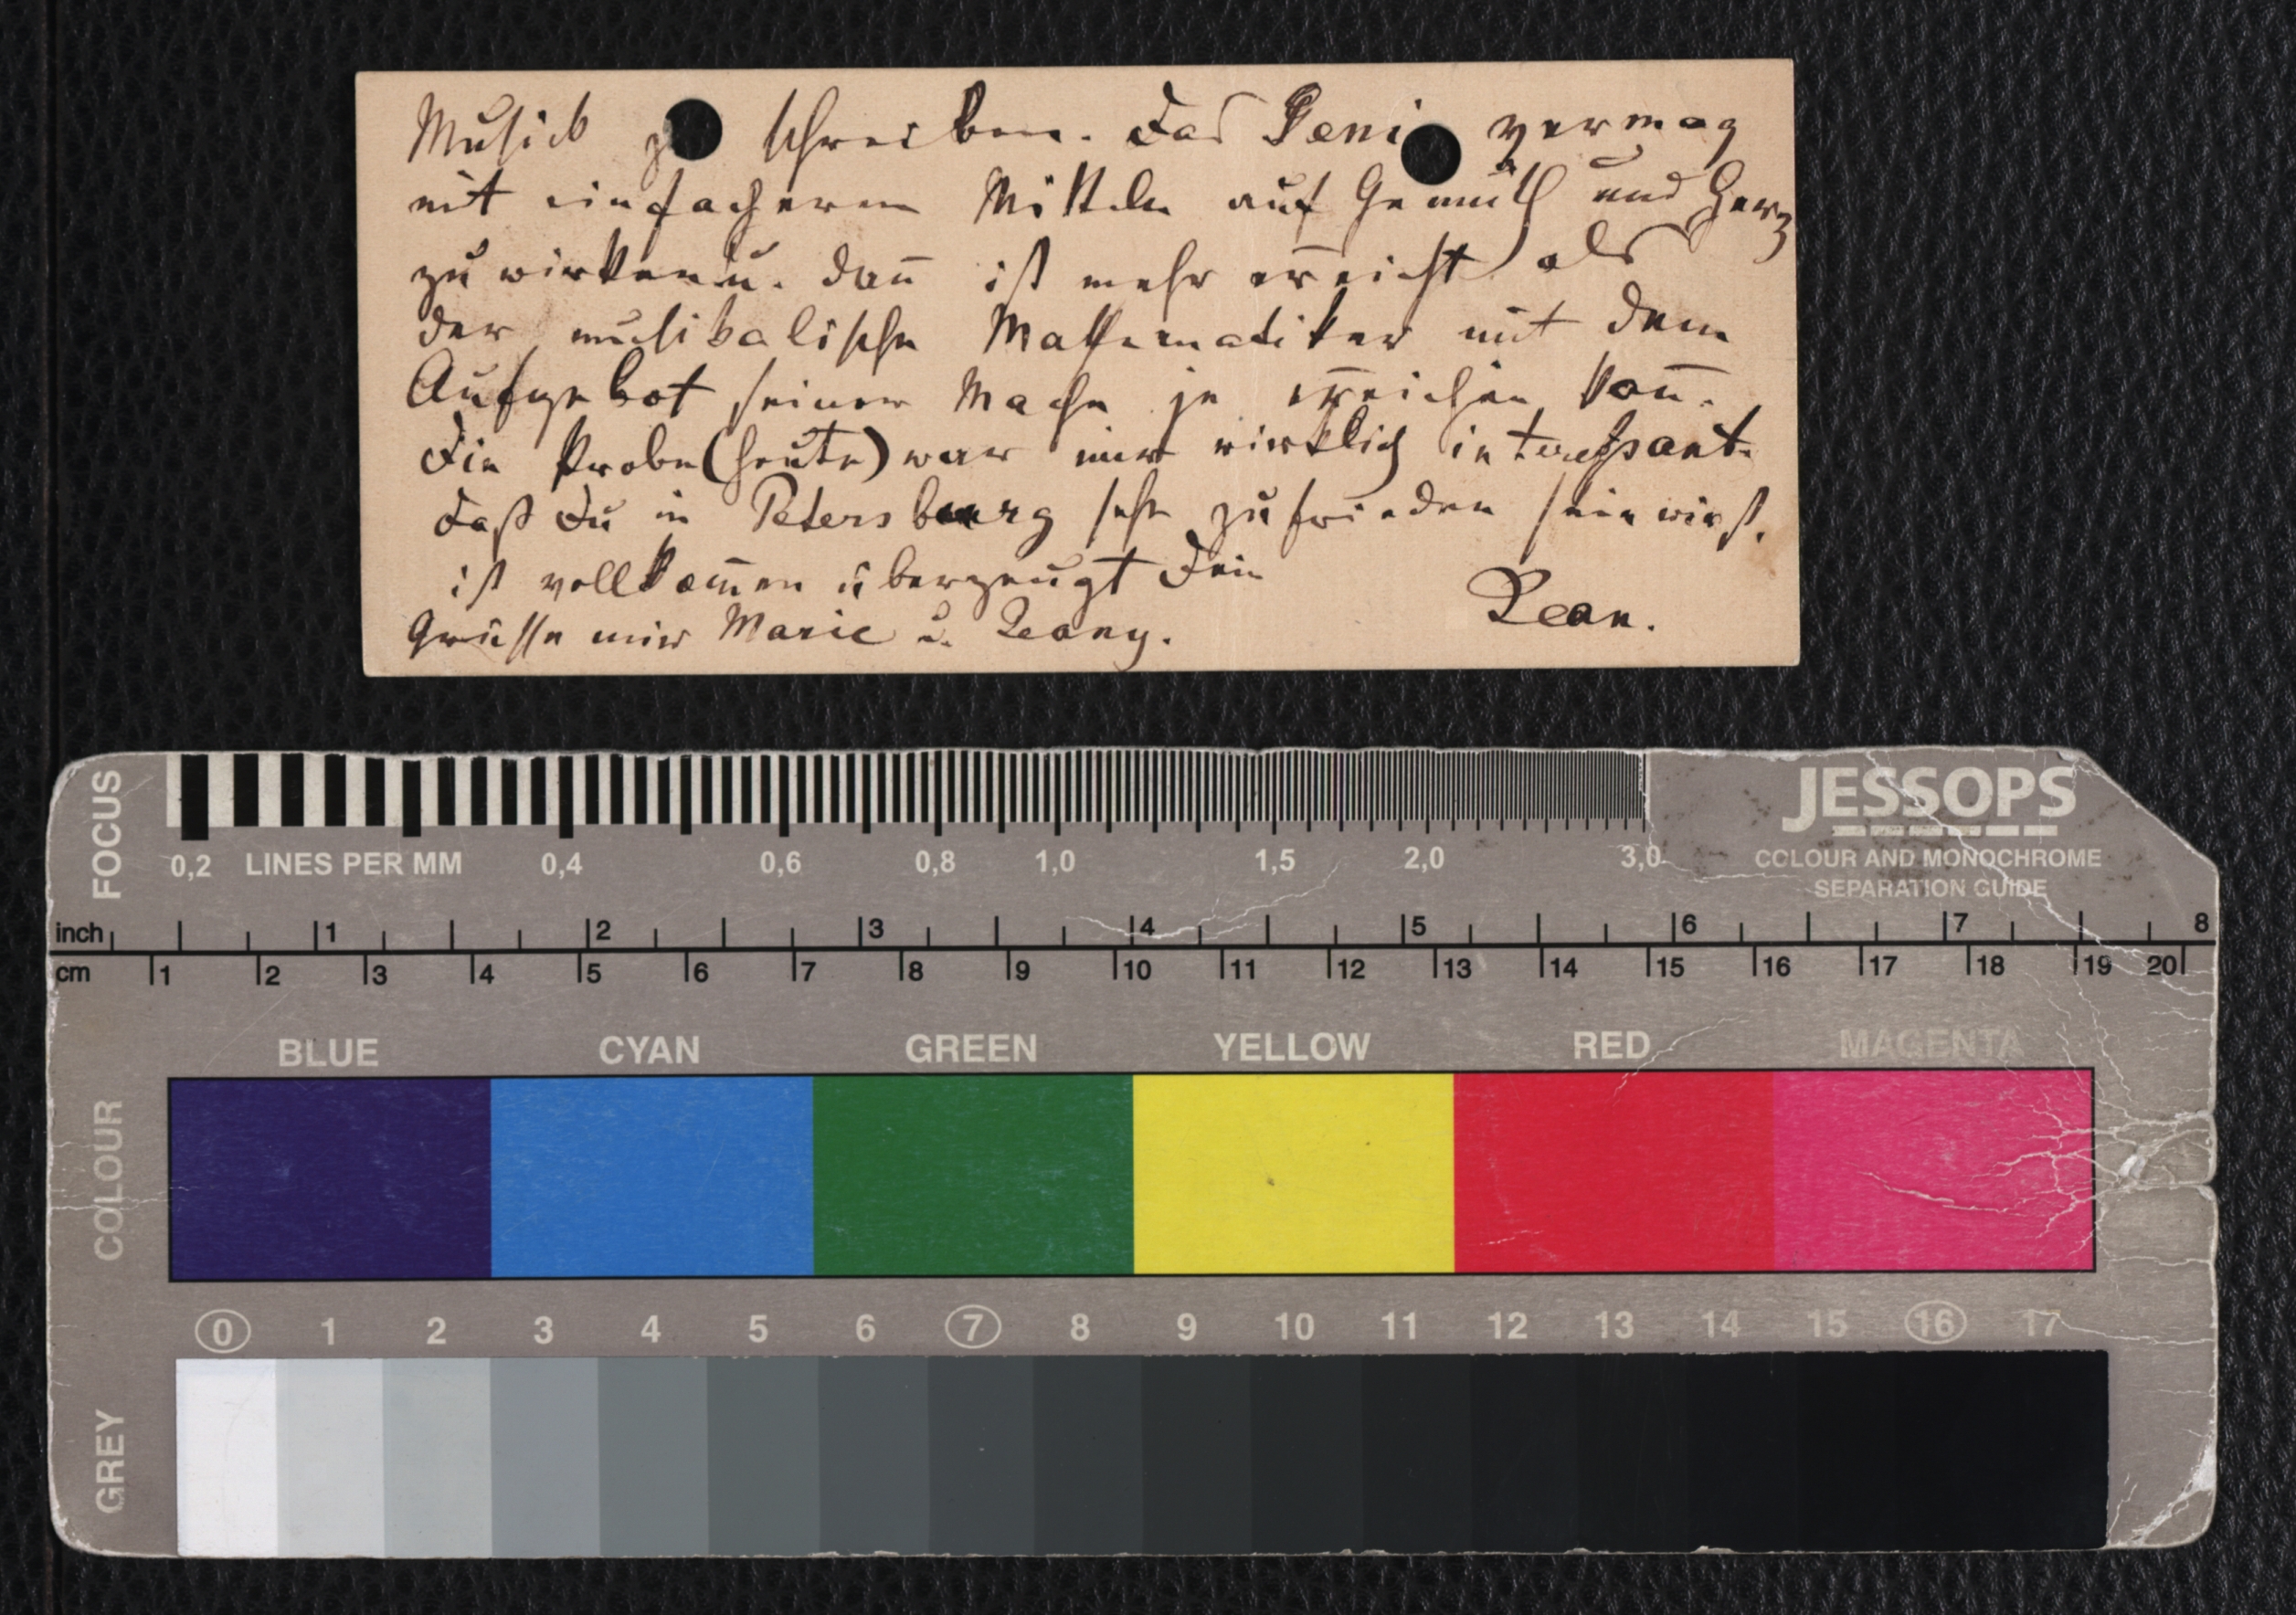 Musick z schreiben. Das Geni vermag
mit einfacheren Mitteln auf Gemüth und Herz
zu wirken u. dan̄ ist mehr er̄eicht als
der musikalische Mathematiker mit dem
Aufgebot seiner Mache je er̄eichen kan̄.
Die Probe (heute) war mir wirklich interessant.
Daß Du in Petersburg sehr zufrieden sein wirst,
ist vollkom̄en überzeugt Dein
Jean.
Grüsse mir Marie u. Jeany.
FOCUS
0,2 LINES PER MM 0,4 0,6 0,8 1,0 1,5 2,0 3,0
JESSOPS
COLOUR AND MONOCHROME
SEPARATION GUIDE
inch 1 2 3 4 5 6 7 8
cm 1 2 3 4 5 6 7 8 9 10 11 12 13 14 15 16 17 18 19 20
COLOUR
BLUE CYAN GREEN YELLOW RED MAGENTA
GREY
0 1 2 3 4 5 6 7 8 9 10 11 12 13 14 15 16 17